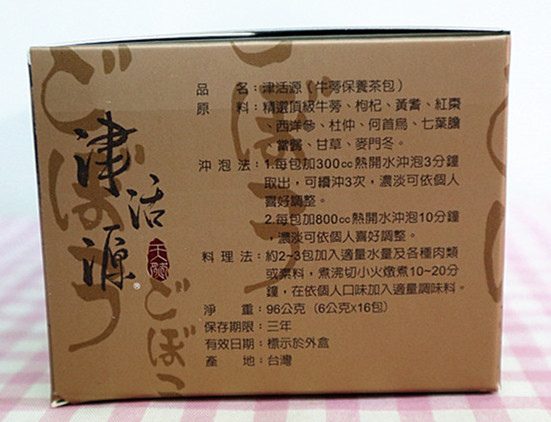 津活源
天賜
®
ごぼう
ごぼう
ごぼう
品　名：津活源（牛蒡保養茶包）
原　料：精選頂級牛蒡、枸杞、黃耆、紅棗
、西洋參、杜仲、何首烏、七葉膽
當歸、甘草、麥門冬。
沖 泡 法：1.每包加300cc熱開水沖泡3分鐘
取出，可續沖3次，濃淡可依個人
喜好調整。
2.每包加800cc熱開水沖泡10分鐘
，濃淡可依個人喜好調整。
料 理 法：約2~3包加入適量水量及各種肉類
或素料，煮沸切小火燉煮10~20分
鐘，在依個人口味加入適量調味料。
淨　重：96公克（6公克×16包）
保存期限：三年
有效日期：標示於外盒
產　地：台灣